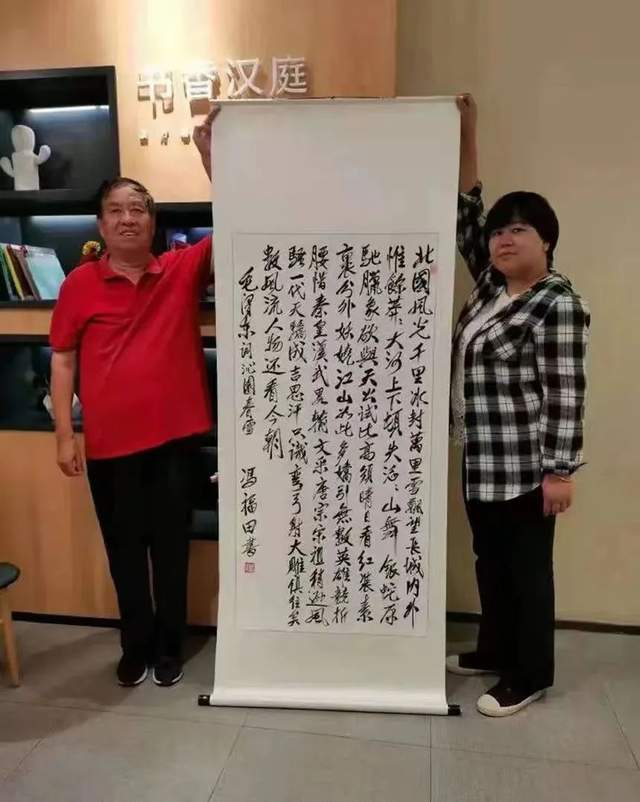 书香汉庭
北國風光千里冰封萬里雪飄望長城内外
惟餘莽〻大河上下頓失滔〻山舞銀蛇原
馳臘象欲與天公試比高須晴日看紅裝素
裹分外妖嬈江山如此多嬌引無數英雄競折
腰惜秦皇漢武畧輸文采唐宗宋祖稍遜風
騷一代天驕成吉思汗只識彎弓射大雕俱往矣
數風流人物还看今朝
毛澤东词沁園春雪
馮福田書